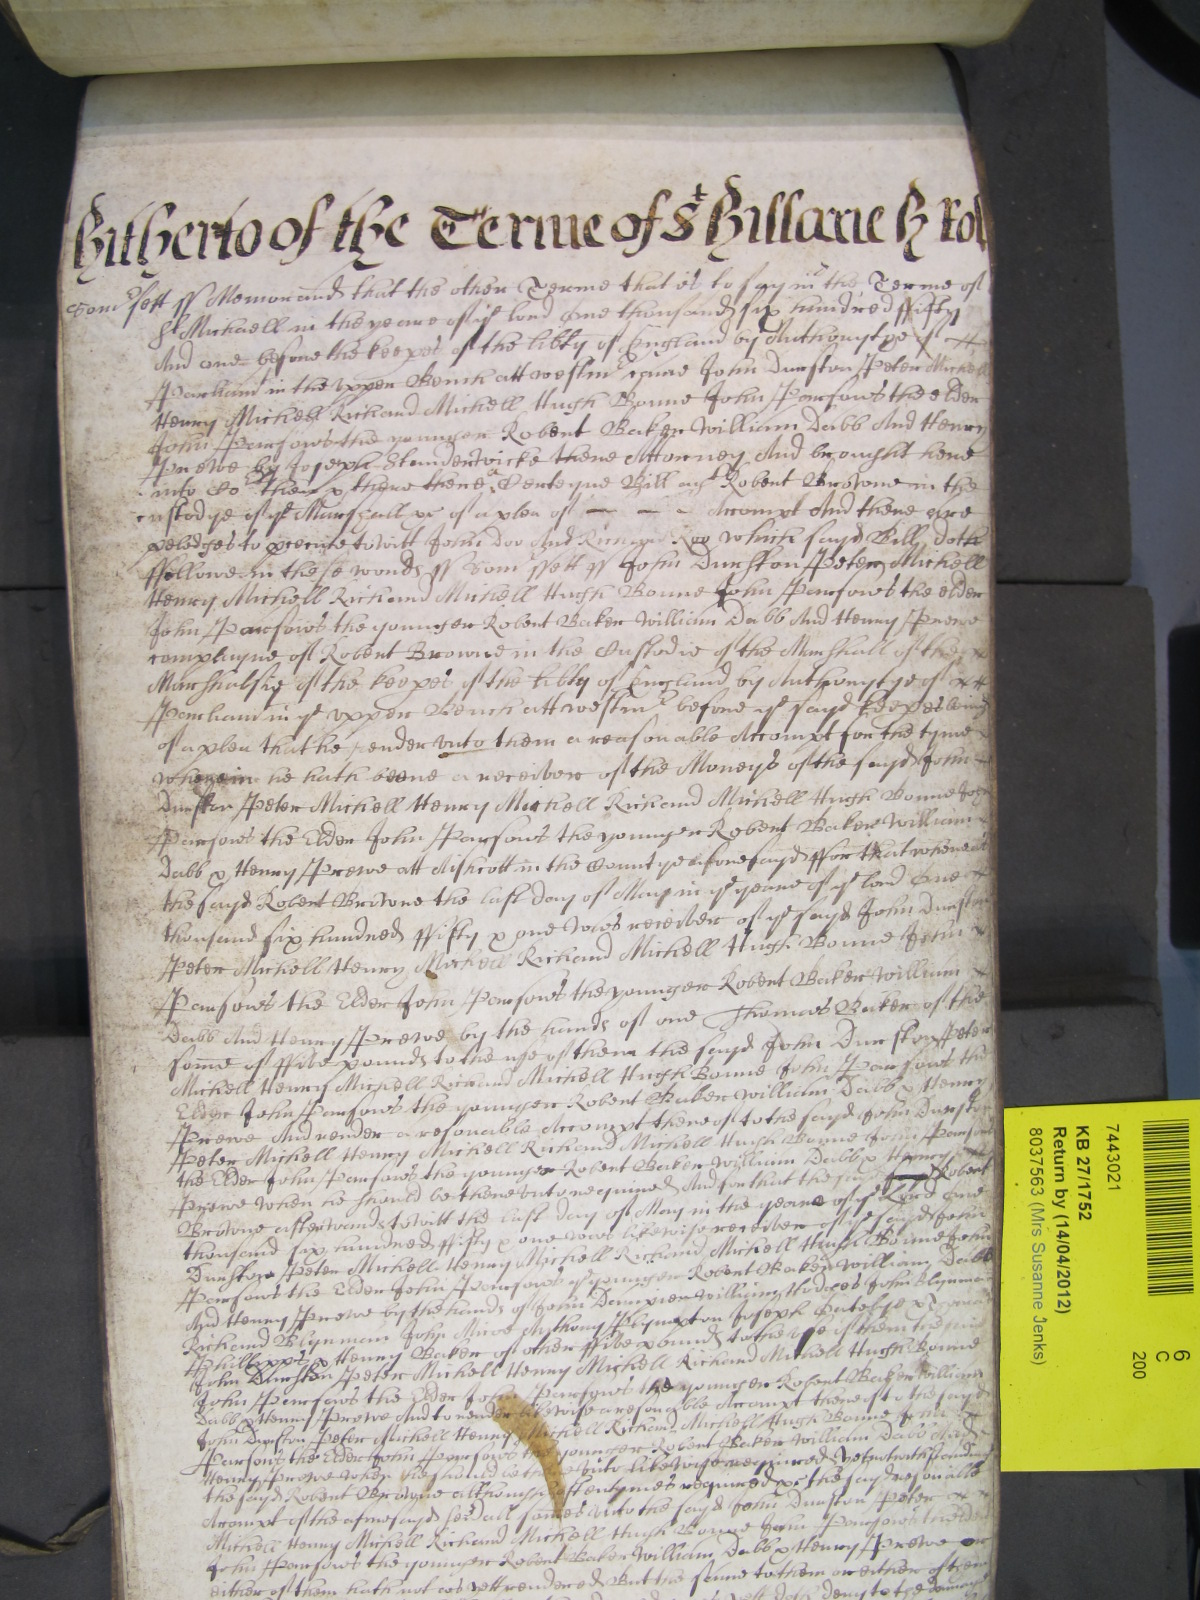 Hitherto of the Terme of St Hillarie
Som'sett ss Memorand that the other Terme that is to say in the Terme of
St Michaell in the yeare of ye lord One thousand six hundred ffifty
And one before the keeps of the libty of England by Authoritye of
Parliam in the upper Bench att westm came John Dunston Peter Michell
Henry Michell Richard Michell Hugh Bonne John Parsons the elder
John Parsons the younger Robert Baker William Dabb And Henry
Prewe by Joseph Standerwicke there Attorney And brought here
into Co then & there there a Certeyne Bill agt Robert Browne in the
custodye of ye Marshall &c of a plea of Accompt And there are
pledges to psecute to witt John Doo And Richard Roo which sayd Bill doth
ffollowe in these words ss Som'sett ss John Dunston Peter Michell
Henry Michell Richard Michell Hugh Bonne John Parsons the elder
John Parsons the younger Robert Baker William Dabb And Henry Prewe
complayne of Robert Browne in the Custodie of the Marshall of the
Marshalsie of the keeps of the libty of England by Authoritye of
Parliam in ye upper Bench att westm before ye sayd keeps being
of a plea that he render unto them a reasonable Accompt for the tyme
wherein he hath beene a receiver of the Moneys of the sayd John
Dunston Peter Michell Henry Michell Richard Michell Hugh Bonne John
Parsons the Elder John Parsons the younger Robert Baker William
Dabb & Henry Prewe att in the Countye aforesayd ffor that whereas
the sayd Robert Browne the last day of May in ye yeare of ye lord One
thousand six hundred ffifty & one was receiver of ye sayd John Dunston
Peter Michell Henry Michell Richard Michell Hugh Bonne John
Parsons the Elder John Parsons the younger Robert Baker William
Dabb And Henry Prewe by the hands of one Thomas Baker of the
some of ffive pounds to the use of them the sayd John Dunston Peter
Michell Henry Michell Richard Michell Hugh Bonne John Parsons the
Elder John Parsons the younger Robert Baker William Dabb & Henry
Prewe And render a resonable Accompt thereof to the sayd John Dunston
Peter Michell Henry Michell Richard Michell Hugh Bonne John Parsons
the Elder John Parsons the younger Robert Baker William Dabb & Henry
Prewe when he should be thereunto required And for that the sayd Robert
Browne afterwards to witt the last day of May in the yeare of ye Lord One
thousand six hundred ffifty & one was likewise receiver of ye sayd John
Dunston Peter Michell Henry Michell Richard Michell Hugh Bonne John
Parsons the Elder John Parsons ye younger Robert Baker William Dabb
And Henry Prewe by the hands of John Dampier William John Blynman
Richard Blynman John Anthony Plympton Joseph &
Phillipps & Henry Baker of other ffive pounds to the use of them the said
John Dunston Peter Michell Henry Michell Richard Michell Hugh Bonne
John Parsons the Elder John Parsons the younger Robert Baker William
Dabb & Henry Prewe And to render likewise a resonable Accompt thereof to the sayd
John Dunston Peter Michell Henry Michell Richard Michell Hugh Bonne John
Parsons the Elder John Parsons the younger Robert Baker William Dabb And
Henry Prewe when he should be thereunto likewise required yet notwithstanding
the sayd Robert Browne although oftentymes required &c the sayd resonable
Accompt of the aforesayd sevall somes unto the sayd John Dunston Peter
Michell Henry Michell Richard Michell Hugh Bonne John Parsons the elder
John Parsons the younger Robert Baker William Dabb & Henry Prewe or
either of them hath not as yett rendered But the same to them or either of them
7443021
KB 27/1752
Return by (14/04/2012)
8037563 (Mrs Susanne Jenks)
6
C
200